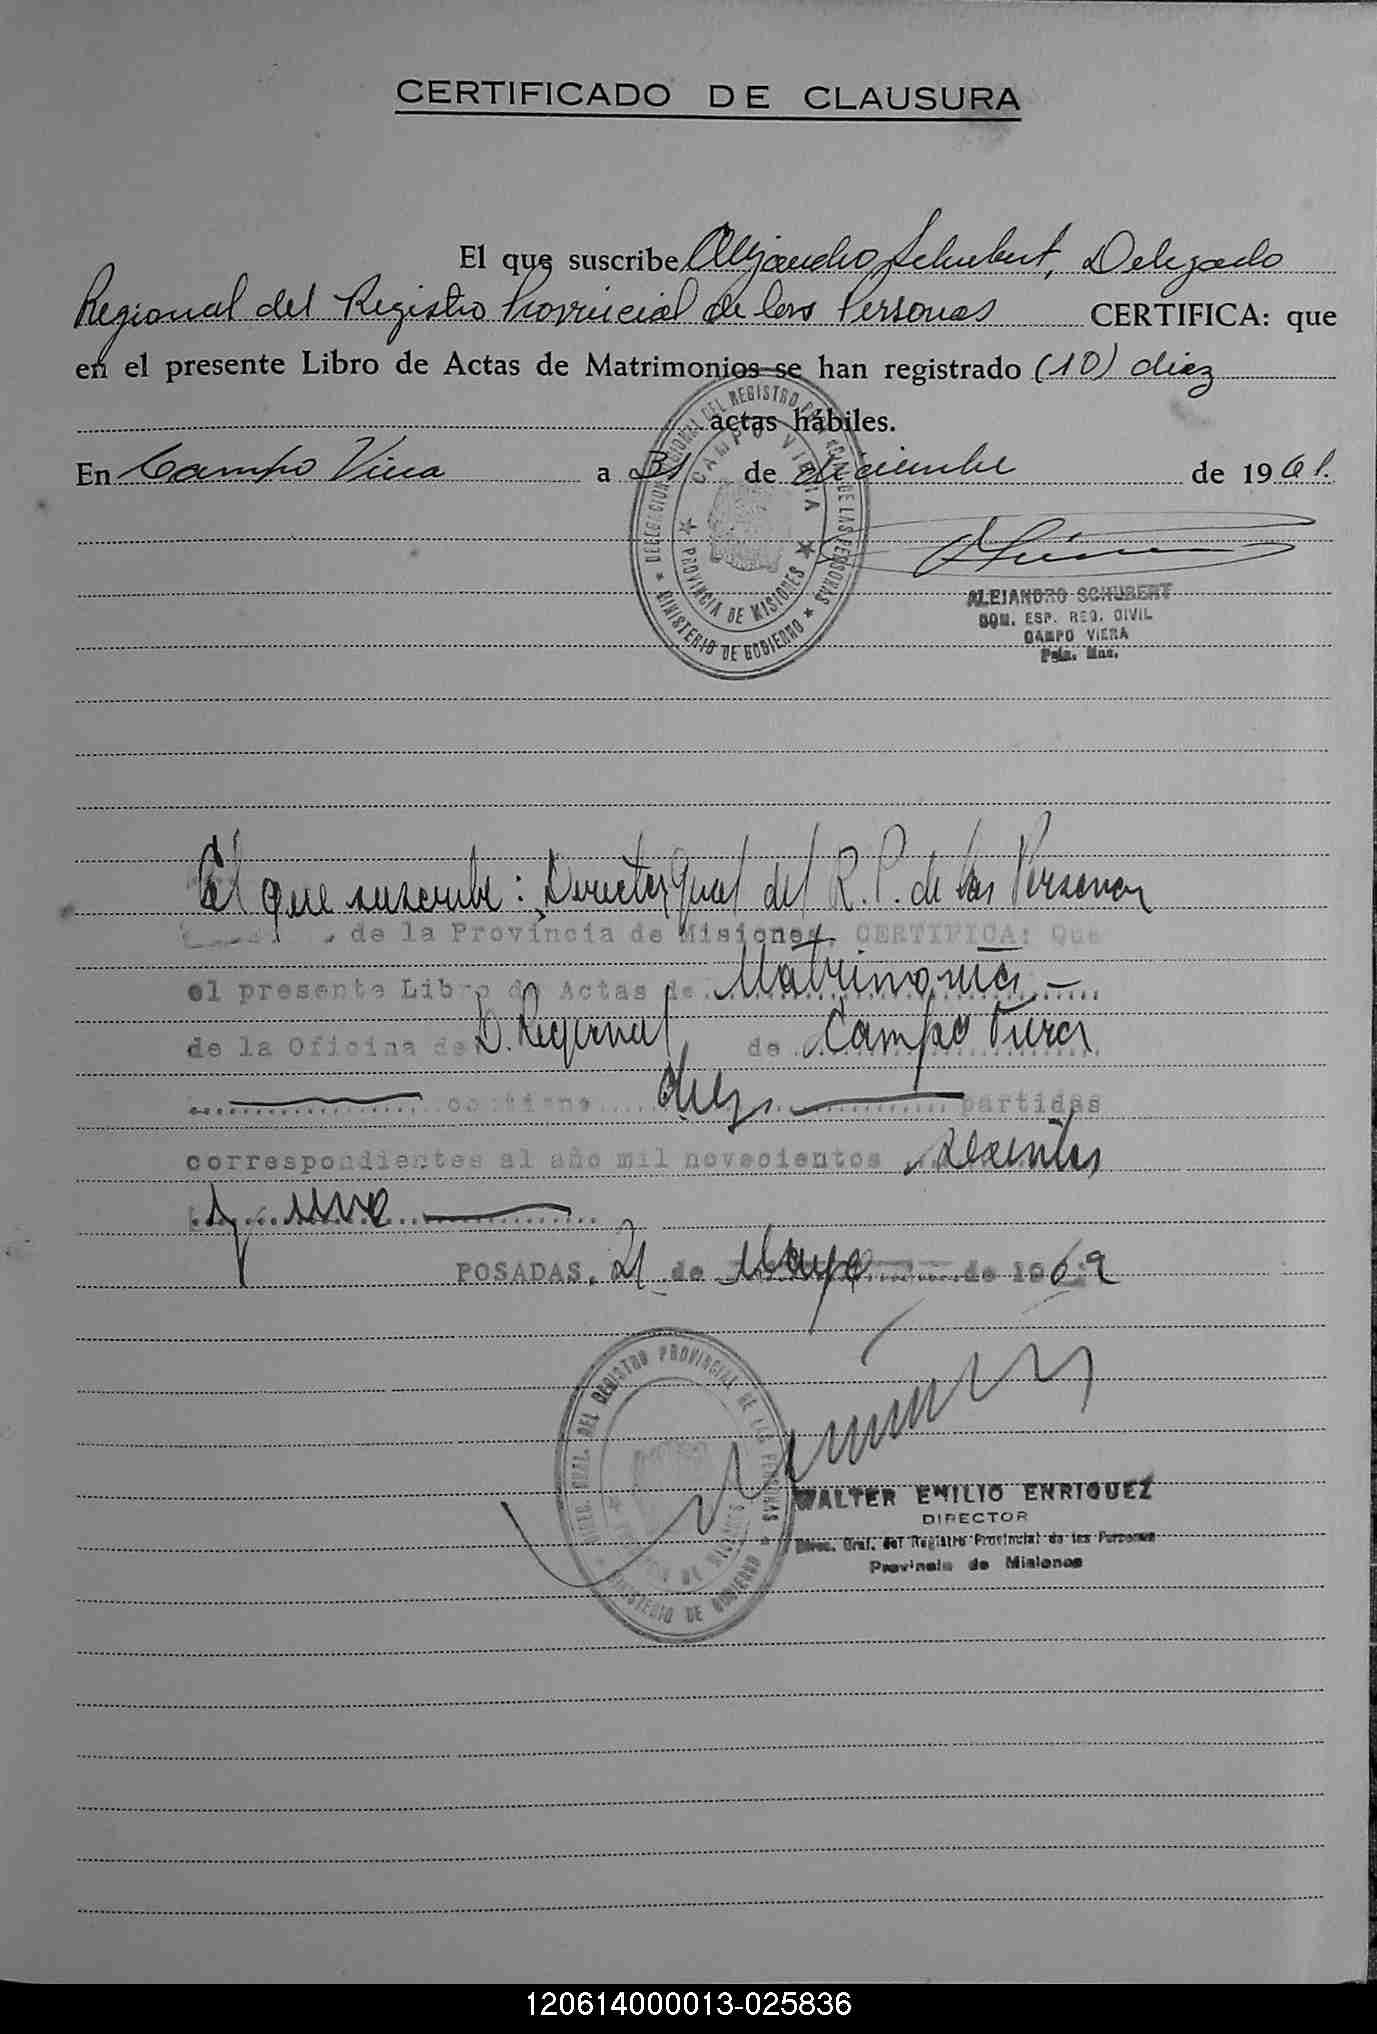 CERTIFICADO DE CLAUSURA
El que suscribe Alejandro Schubert, Delegado
Regional del Registro Provincial de las Personas CERTIFICA: que
en el presente Libro de Actas de Matrimonios se han registrado (10) diez
actas hábiles.
En Campo Viera a 31 de diciembre de 1961.
DELEGACION REGIONAL DEL REGISTRO PROVINCIAL DE LAS PERSONAS
CAMPO VIERA
PROVINCIA DE MISIONES
MINISTERIO DE GOBIERNO
ALEJANDRO SCHUBERT
ESP. REG. CIVIL
CAMPO VIERA
Pcia. Mnes.
El que suscribe: Director Gral del R. P. de las Personas
de la Provincia de Misiones, CERTIFICA: Que
el presente Libro de Actas de Matrimonios.-
de la Oficina de D. Regional de Campo Viera
contiene diez partidas
correspondientes al año mil novecientos sesenta
y uno
POSADAS, 21 de Mayo de 1969
DIREC. GRAL. DEL REGISTRO PROVINCIAL DE LAS PERSONAS
PROVINCIA DE MISIONES
MINISTERIO DE GOBIERNO
WALTER EMILIO ENRIQUEZ
DIRECTOR
Direc. Gral. del Registro Provincial de las Personas
Provincia de Misiones
120614000013-025836